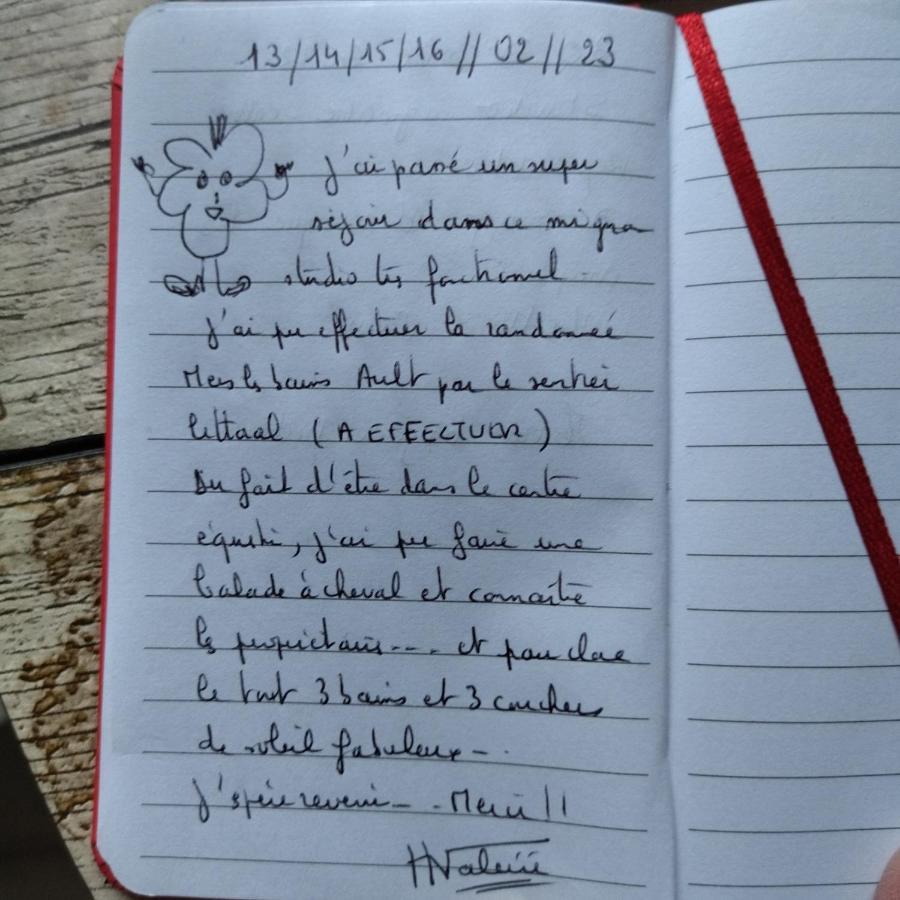 13/14/15/16 // 02 // 23
J'ai passé un super
séjour dans ce mignon
studio très fonctionnel
J'ai pu effectuer la randonnée
Mers les bains Ault par le sentier
littoral (A EFFECTUER)
Du fait d'être dans le centre
équestre, j'ai pu faire une
balade à cheval et connaître
les propriétaires --- et pour clore
le tout 3 bains et 3 couchers
de soleil fabuleux -.
J'espère revenir - - Merci !!
Valérie